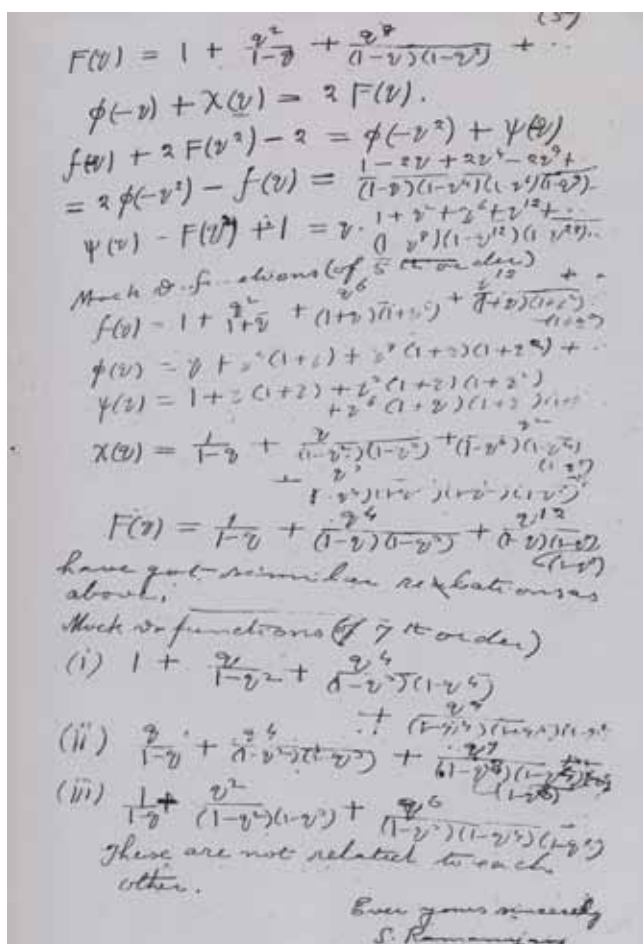 F(q) = 1 + q^2/(1-q) + q^8/((1-q)(1-q^3)) + ..
φ(-q) + χ(q) = 2 F(q).
f(q) + 2 F(q^2) - 2 = φ(-q^2) + ψ(q)
= 2 φ(-q^2) - f(q) = (1 - 2q + 2q^4 - 2q^9 + ..)/((1-q)(1-q^4)(1-q^6)(1-q^9)..
ψ(q) - F(q^2) + 1 = q · (1 + q^2 + q^6 + q^12 + ..)/((1-q^8)(1-q^12)(1-q^28)..
Mock ϑ-functions (of 5th order)
f(q) = 1 + q^2/(1+q) + q^6/((1+q)(1+q^2)) + q^12/((1+q)(1+q^2)(1+q^3)) + ..
φ(q) = q + q^4(1+q) + q^9(1+q)(1+q^2) + ..
ψ(q) = 1 + q(1+q) + q^3(1+q)(1+q^2)
+ q^6(1+q)(1+q^2)(1+
χ(q) = 1/(1-q) + q/((1-q^2)(1-q^3)) + q^2/((1-q^3)(1-q^4)(1-q^5))
+ q^3/((1-q^4)(1-q^5)(1-q^6)(1-q^7))
F(q) = 1/(1-q) + q^4/((1-q)(1-q^3)) + q^12/((1-q)(1-q^3)(1-q^5))
have got similar relations as
above.
Mock ϑ-functions (of 7th order)
(i) 1 + q/(1-q^2) + q^4/((1-q^3)(1-q^4))
+ q^9/((1-q^4)(1-q^5)(1-q^6))
(ii) q/(1-q) + q^4/((1-q^2)(1-q^3)) + q^9/((1-q^3)(1-q^4)(1-q^5))
(iii) 1/(1-q) + q^2/((1-q^2)(1-q^3)) + q^6/((1-q^3)(1-q^4)(1-q^5))
These are not related to each
other.
Ever yours sincerely
S. Ramanujan